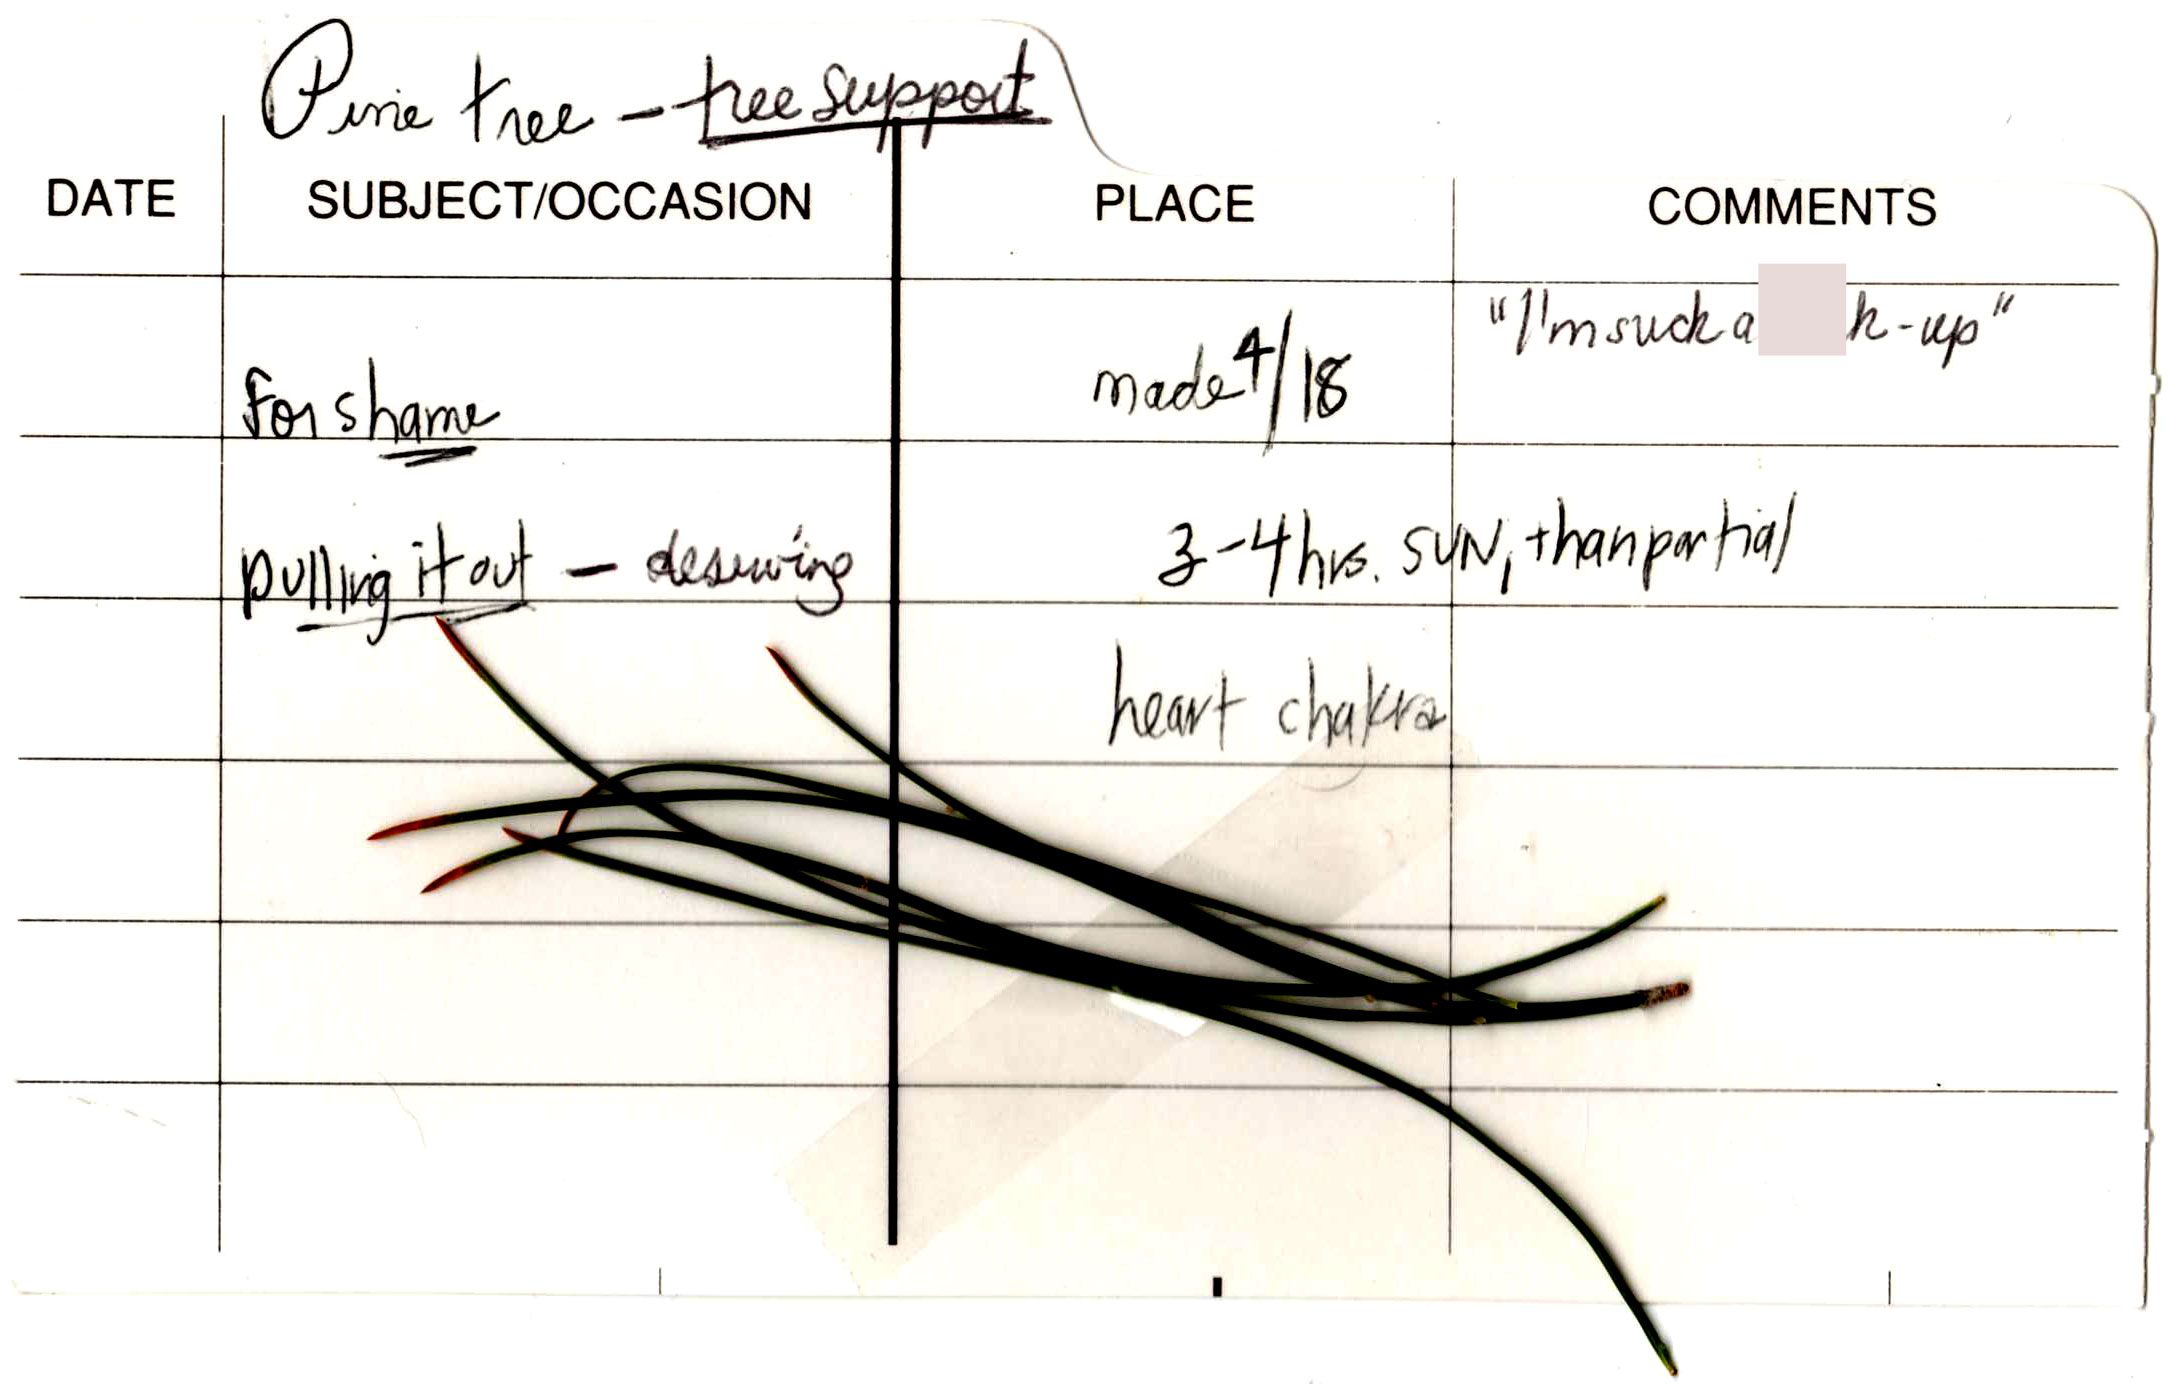 Pine tree - tree support
DATE SUBJECT/OCCASION PLACE COMMENTS
"I'm such a k-up"
for shame made 4/18
pulling it out - deserving 3-4 hrs. SUN, than partial
heart chakra